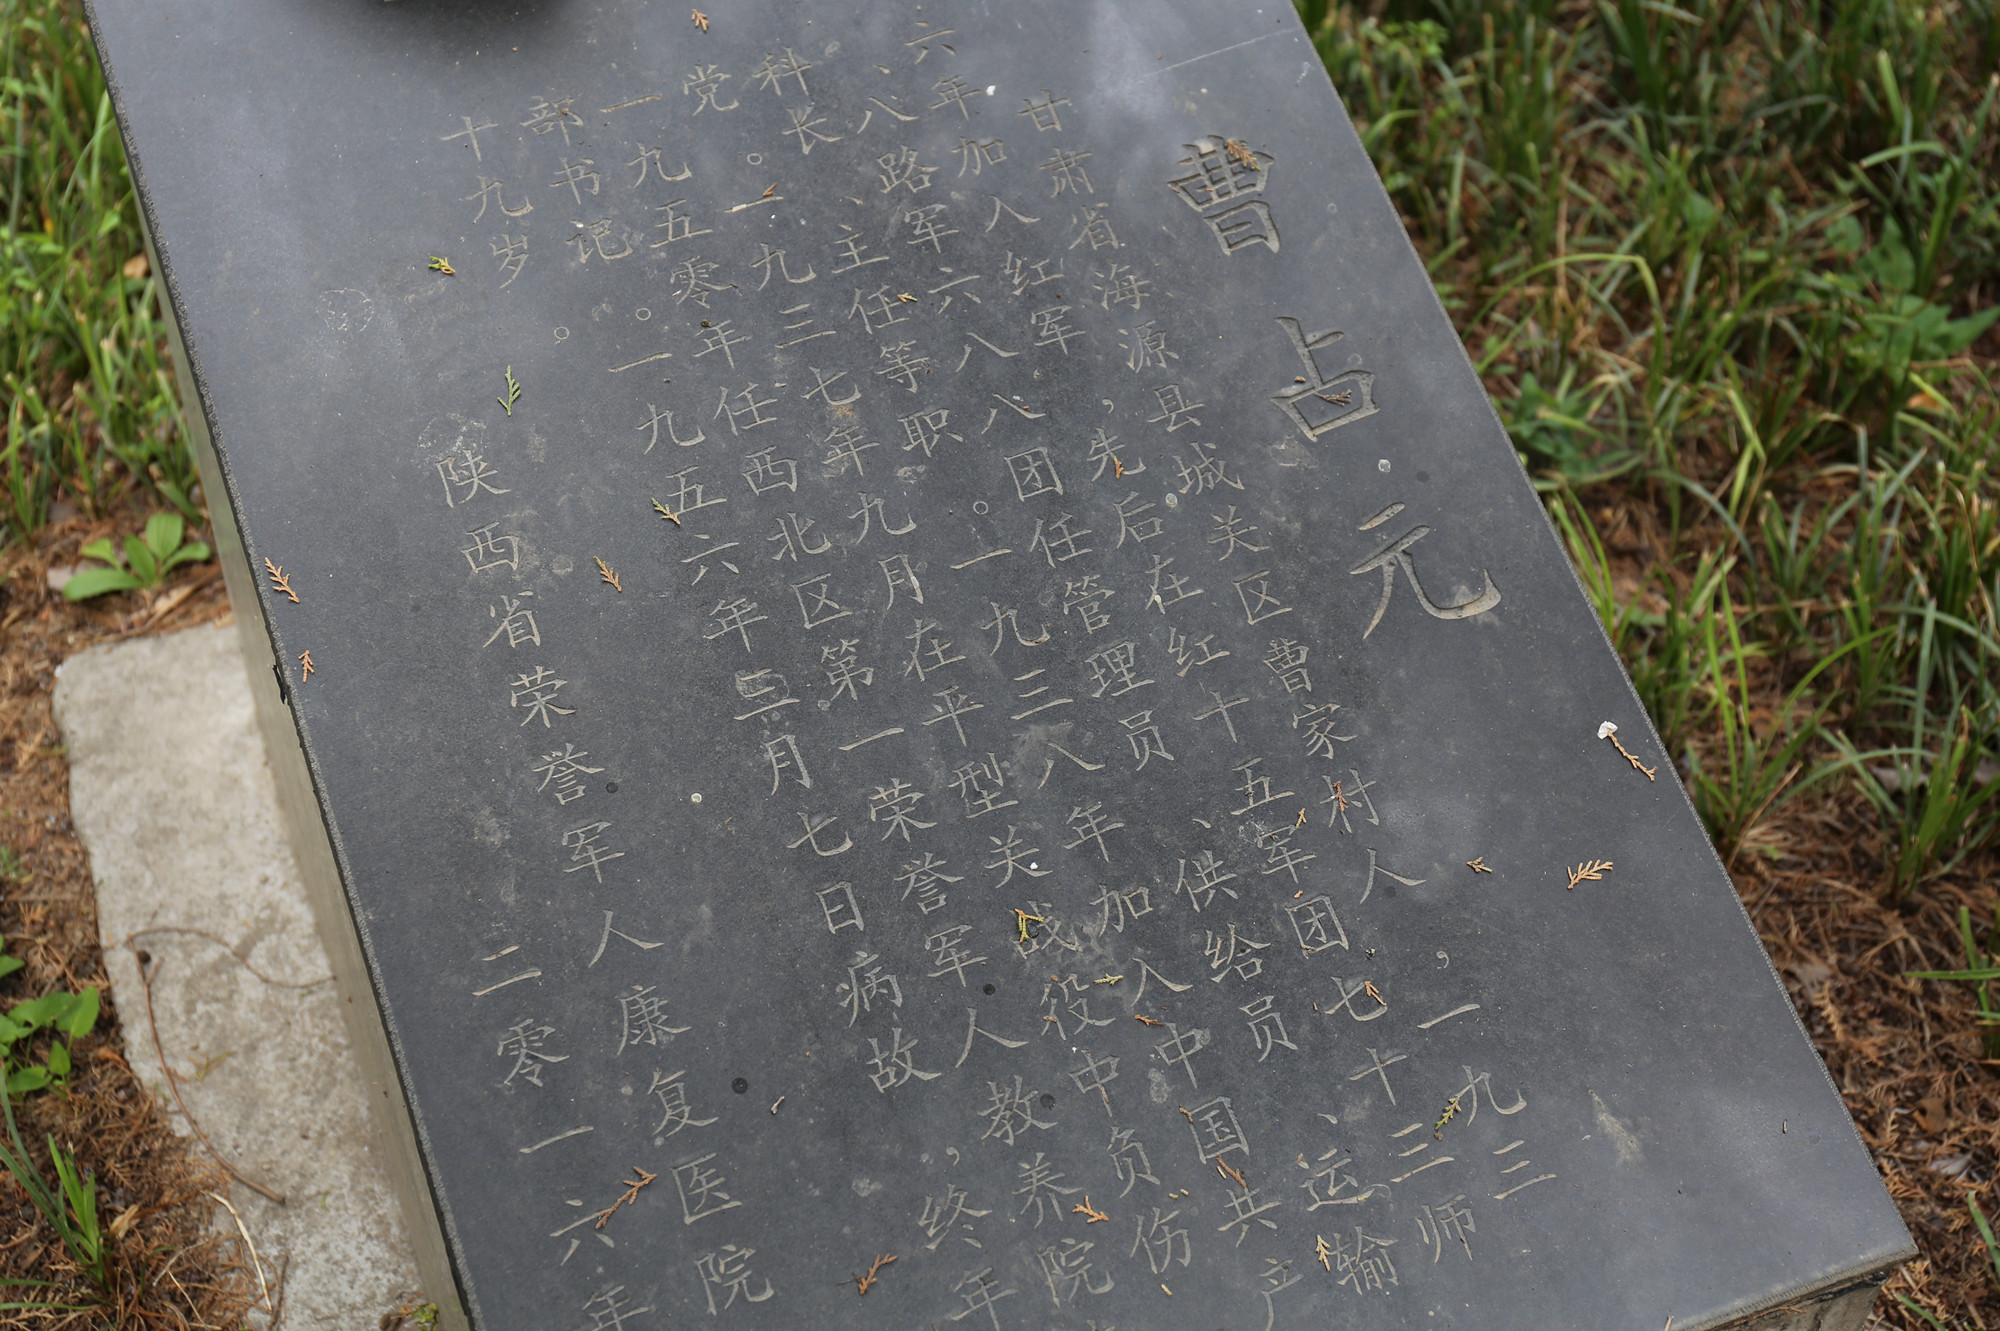 曹占元
甘肃省海源县城关区曹家村人，一九三
六年加入红军，先后在红十五军团七十三师
、八路军六八八团任管理员、供给员、运输
科长、主任等职。一九三八年加入中国共产
党。一九三七年九月在平型关战役中负伤
一九五零年任西北区第一荣誉军人教养院
部书记。一九五六年三月七日病故，终年
十九岁。
陕西省荣誉军人康复医院
二零一六年